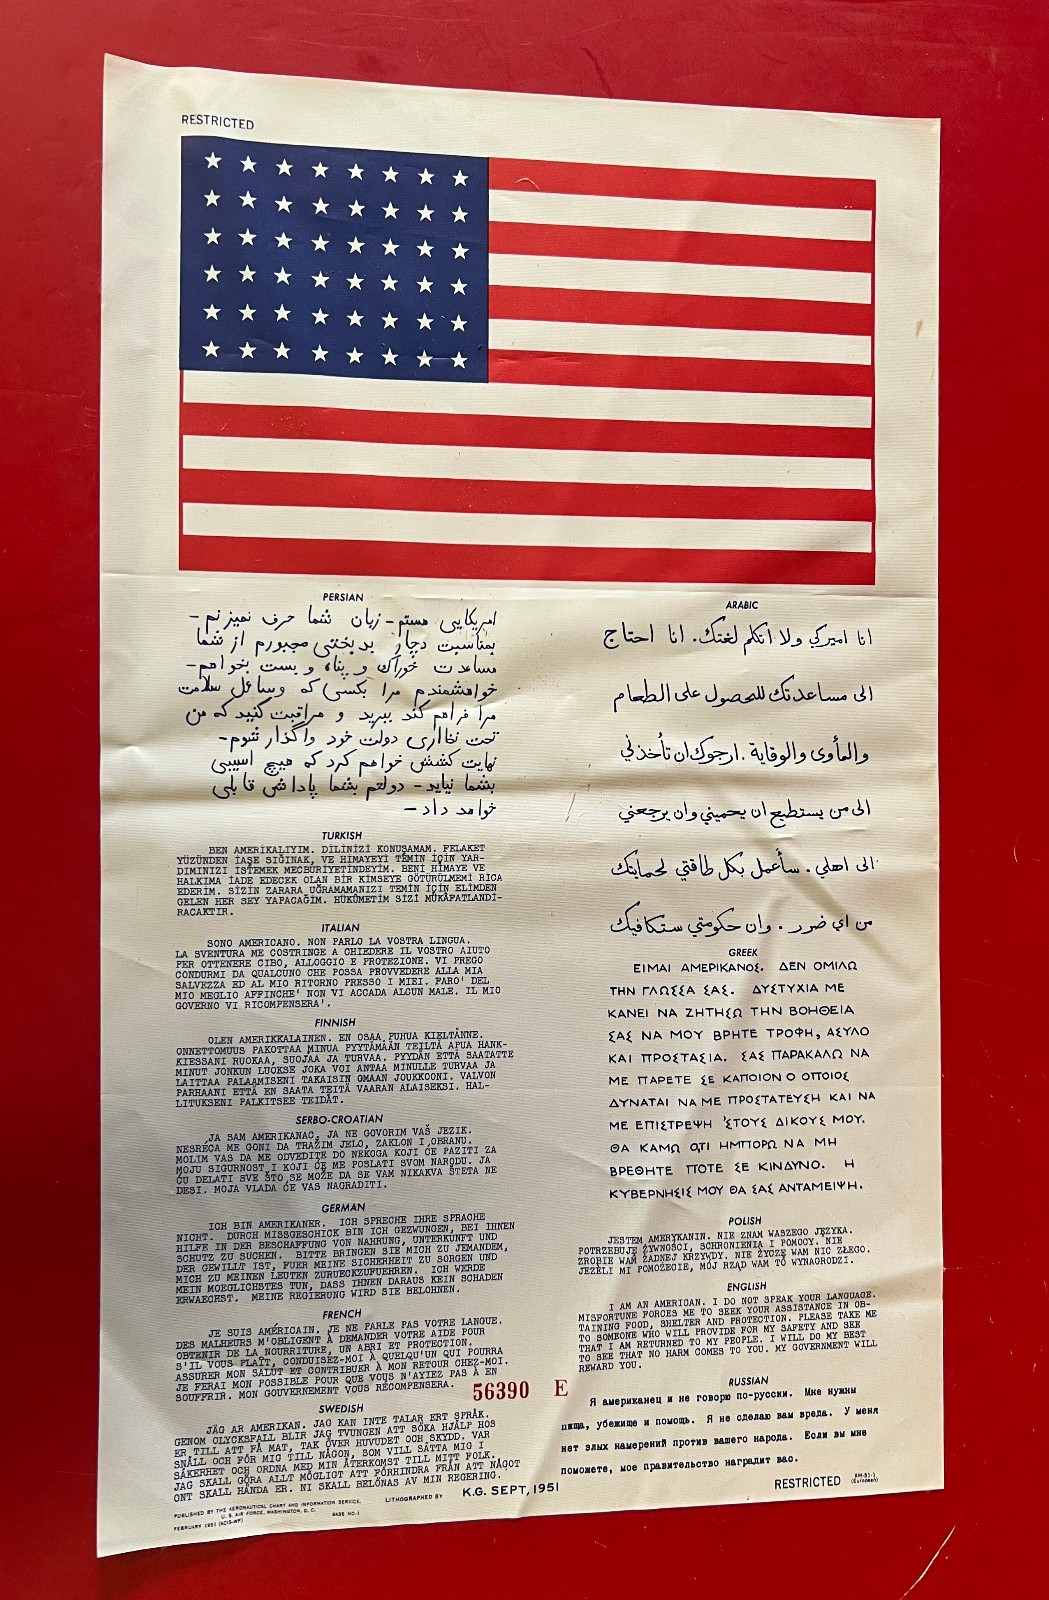 RESTRICTED
PERSIAN
امریکایی هستم - زبان شما حرف نمیزنم -
بمناسبت دچار بدبختی مجبورم از شما
مساعدت خوراک و پناه و بست بخواهم -
خواهشمندم مرا بکسی که وسائل سلامت
مرا فراهم کند ببرید و مراقبت کنید که من
تحت نگاری دولت خود واگذار شوم -
نهایت کشش خواهم کرد که هیچ اسیبی
بشما نیاید - دولتم بشما پاداش قابلی
خواهد داد -
TURKISH
BEN AMERİKALIYIM. DİLİNİZİ KONUŞAMAM. FELAKET
YÜZÜNDEN İAŞE SIĞINAK, VE HİMAYEYİ TEMİN İÇİN YAR-
DIMINIZI İSTEMEK MECBURİYETİNDEYİM. BENİ HİMAYE VE
HALKIMA İADE EDECEK OLAN BİR KİMSEYE GÖTÜRÜLMEMİ RİCA
EDERİM. SİZİN ZARARA UĞRAMAMANIZI TEMİN İÇİN ELİMDEN
GELEN HER ŞEY YAPACAĞIM. HÜKÛMETİM SİZİ MÜKÂFATLANDI-
RACAKTIR.
ITALIAN
SONO AMERICANO. NON PARLO LA VOSTRA LINGUA.
LA SVENTURA ME COSTRINGE A CHIEDERE IL VOSTRO AIUTO
PER OTTENERE CIBO, ALLOGGIO E PROTEZIONE. VI PREGO
CONDURMI DA QUALCUNO CHE POSSA PROVVEDERE ALLA MIA
SALVEZZA ED AL MIO RITORNO PRESSO I MIEI. FARO' DEL
MIO MEGLIO AFFINCHE' NON VI ACCADA ALCUN MALE. IL MIO
GOVERNO VI RICOMPENSERA'.
FINNISH
OLEN AMERIKKALAINEN. EN OSAA PUHUA KIELTÄNNE.
ONNETTOMUUS PAKOTTAA MINUA PYYTÄMÄÄN TEILTÄ APUA HANK-
KIESSANI RUOKAA, SUOJAA JA TURVAA. PYYDÄN ETTÄ SAATATTE
MINUT JONKUN LUOKSE JOKA VOI ANTAA MINULLE TURVAA JA
LAITTAA PALAAMISENI TAKAISIN OMAAN JOUKKOONI. VALVON
PARHAANI ETTÄ EN SAATA TEITÄ VAARAN ALAISEKSI. HAL-
LITUKSENI PALKITSEE TEIDÄT.
SERBO-CROATIAN
JA SAM AMERIKANAC, JA NE GOVORIM VAŠ JEZIK.
NESREĆA ME GONI DA TRAŽIM JELO, ZAKLON I OBRANU.
MOLIM VAS DA ME ODVEDITE DO NEKOGA KOJI ĆE PAZITI ZA
MOJU SIGURNOST I KOJI ĆE ME POSLATI SVOM NARODU. JA
ĆU DELATI SVE ŠTO SE MOŽE DA SE VAM NIKAKVA ŠTETA NE
DESI. MOJA VLADA ĆE VAS NAGRADITI.
GERMAN
ICH BIN AMERIKANER. ICH SPRECHE IHRE SPRACHE
NICHT. DURCH MISSGESCHICK BIN ICH GEZWUNGEN, BEI IHNEN
HILFE IN DER BESCHAFFUNG VON NAHRUNG, UNTERKUNFT UND
SCHUTZ ZU SUCHEN. BITTE BRINGEN SIE MICH ZU JEMANDEM,
DER GEWILLT IST, FUER MEINE SICHERHEIT ZU SORGEN UND
MICH ZU MEINEN LEUTEN ZURUECKZUFUEHREN. ICH WERDE
MEIN MOEGLICHSTES TUN, DASS IHNEN DARAUS KEIN SCHADEN
ERWAECHST. MEINE REGIERUNG WIRD SIE BELOHNEN.
FRENCH
JE SUIS AMÉRICAIN. JE NE PARLE PAS VOTRE LANGUE.
DES MALHEURS M'OBLIGENT À DEMANDER VOTRE AIDE POUR
OBTENIR DE LA NOURRITURE, UN ABRI ET PROTECTION.
S'IL VOUS PLAÎT, CONDUISEZ-MOI À QUELQU'UN QUI POURRA
ASSURER MON SALUT ET CONTRIBUER À MON RETOUR CHEZ-MOI.
JE FERAI MON POSSIBLE POUR QUE VOUS N'AYIEZ PAS À EN
SOUFFRIR. MON GOUVERNEMENT VOUS RÉCOMPENSERA.
SWEDISH
JÄG AR AMERIKAN. JAG KAN INTE TALAR ERT SPRÅK.
GENOM OLYCKSFALL BLIR JAG TVUNGEN ATT SÖKA HJÄLP HOS
ER TILL ATT FÅ MAT, TAK ÖVER HUVUDET OCH SKYDD. VAR
SNÄLL OCH FÖR MIG TILL NÅGON, SOM VILL SÄTTA MIG I
SÄKERHET OCH ORDNA MED MIN ÅTERKOMST TILL MITT FOLK.
JAG SKALL GÖRA ALLT MÖGLIGT ATT FÖRHINDRA FRÅN ATT NÅGOT
ONT SKALL HÄNDA ER. NI SKALL BELÖNAS AV MIN REGERING.
ARABIC
انا اميركي ولا اتكلم لغتك. انا احتاج
الى مساعدتك للحصول على الطعام
والمأوى والوقاية. ارجوك ان تأخذني
الى من يستطيع ان يحميني وان يرجعني
الى اهلي. سأعمل بكل طاقتي لحمايتك
من اي ضرر. وان حكومتي ستكافيك
GREEK
ΕΙΜΑΙ ΑΜΕΡΙΚΑΝΟΣ. ΔΕΝ ΟΜΙΛΩ
ΤΗΝ ΓΛΩΣΣΑ ΣΑΣ. ΔΥΣΤΥΧΙΑ ΜΕ
ΚΑΝΕΙ ΝΑ ΖΗΤΗΣΩ ΤΗΝ ΒΟΗΘΕΙΑ
ΣΑΣ ΝΑ ΜΟΥ ΒΡΗΤΕ ΤΡΟΦΗ, ΑΣΥΛΟ
ΚΑΙ ΠΡΟΣΤΑΣΙΑ. ΣΑΣ ΠΑΡΑΚΑΛΩ ΝΑ
ΜΕ ΠΑΡΕΤΕ ΣΕ ΚΑΠΟΙΟΝ Ο ΟΠΟΙΟΣ
ΔΥΝΑΤΑΙ ΝΑ ΜΕ ΠΡΟΣΤΑΤΕΥΣΗ ΚΑΙ ΝΑ
ΜΕ ΕΠΙΣΤΡΕΨΗ ΣΤΟΥΣ ΔΙΚΟΥΣ ΜΟΥ.
ΘΑ ΚΑΜΩ Ο,ΤΙ ΗΜΠΟΡΩ ΝΑ ΜΗ
ΒΡΕΘΗΤΕ ΠΟΤΕ ΣΕ ΚΙΝΔΥΝΟ. Η
ΚΥΒΕΡΝΗΣΙΣ ΜΟΥ ΘΑ ΣΑΣ ΑΝΤΑΜΕΙΨΗ.
POLISH
JESTEM AMERYKANIN. NIE ZNAM WASZEGO JĘZYKA.
POTRZEBUJĘ ŻYWNOŚCI, SCHRONIENIA I POMOCY. NIE
ZROBIĘ WAM ŻADNEJ KRZYWDY. NIE ŻYCZĘ WAM NIC ZŁEGO.
JEŻELI MI POMOŻECIE, MÓJ RZĄD WAM TO WYNAGRODZI.
ENGLISH
I AM AN AMERICAN. I DO NOT SPEAK YOUR LANGUAGE.
MISFORTUNE FORCES ME TO SEEK YOUR ASSISTANCE IN OB-
TAINING FOOD, SHELTER AND PROTECTION. PLEASE TAKE ME
TO SOMEONE WHO WILL PROVIDE FOR MY SAFETY AND SEE
THAT I AM RETURNED TO MY PEOPLE. I WILL DO MY BEST
TO SEE THAT NO HARM COMES TO YOU. MY GOVERNMENT WILL
REWARD YOU.
RUSSIAN
Я американец и не говорю по-русски. Мне нужны
пища, убежище и помощь. Я не сделаю вам вреда. У меня
нет злых намерений против вашего народа. Если вы мне
поможете, мое правительство наградит вас.
56390 E
PUBLISHED BY THE AERONAUTICAL CHART AND INFORMATION SERVICE,
U. S. AIR FORCE, WASHINGTON, D. C.
FEBRUARY 1951 (ACIS-WP)
BASE NO. 1
LITHOGRAPHED BY K.G. SEPT, 1951
RESTRICTED
EM-B1-1
(European)